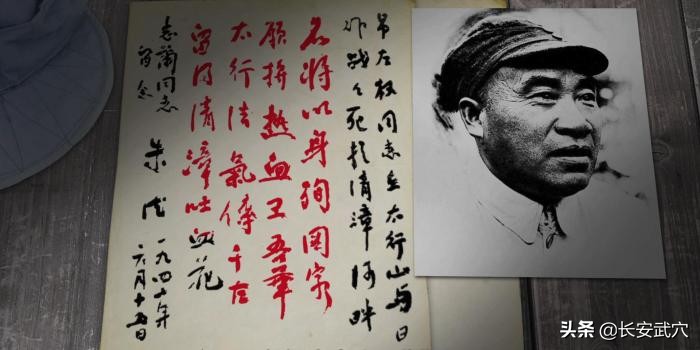 吊左权同志在太行山与日
作战々死於清漳河畔
名将以身殉国家
願拚熱血卫吾華
太行浩氣傳千古
留得清漳吐血花
志蘭同志
留念
朱德
一九四二年
六月十五日
头条 @长安武穴